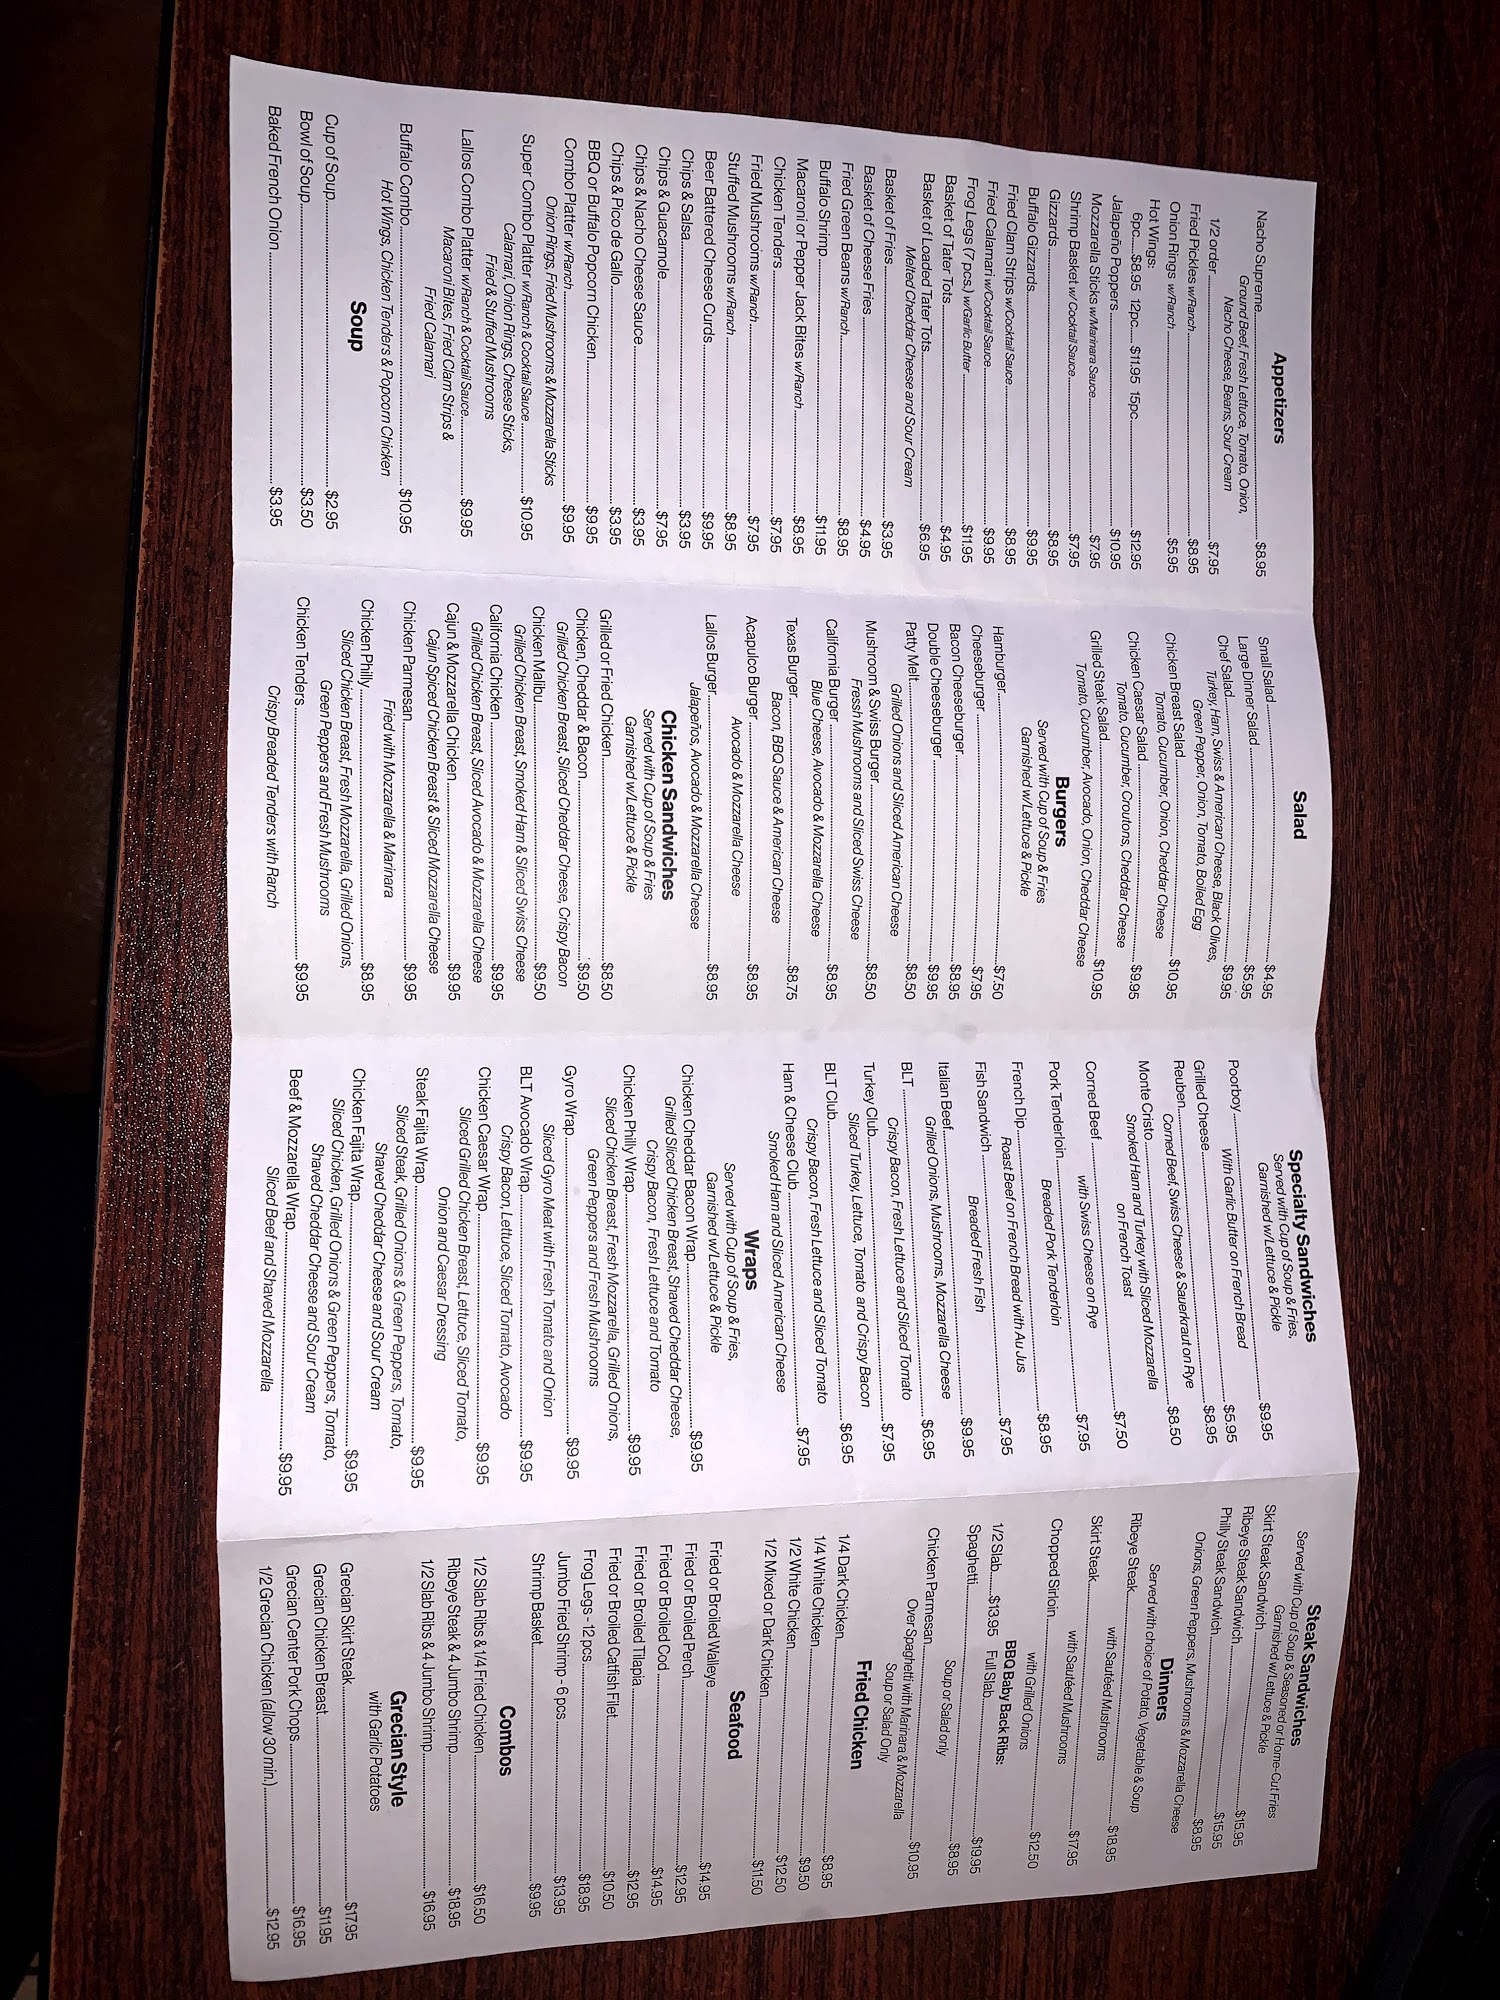 Appetizers
Nacho Supreme........$8.95
Ground Beef, Fresh Lettuce, Tomato, Onion,
Nacho Cheese, Beans, Sour Cream
1/2 order........$7.95
Fried Pickles w/Ranch........$8.95
Onion Rings w/Ranch........$5.95
Hot Wings:
6pc....$8.95 12pc....$11.95 15pc........$12.95
Jalapeño Poppers........$10.95
Mozzarella Sticks w/Marinara Sauce........$7.95
Shrimp Basket w/Cocktail Sauce........$7.95
Gizzards........$8.95
Buffalo Gizzards........$9.95
Fried Clam Strips w/Cocktail Sauce........$8.95
Fried Calamari w/Cocktail Sauce........$9.95
Frog Legs (7 pcs.) w/Garlic Butter........$11.95
Basket of Tater Tots........$4.95
Basket of Loaded Tater Tots........$6.95
Melted Cheddar Cheese and Sour Cream
Basket of Fries........$3.95
Basket of Cheese Fries........$4.95
Fried Green Beans w/Ranch........$8.95
Buffalo Shrimp........$11.95
Macaroni or Pepper Jack Bites w/Ranch........$8.95
Chicken Tenders........$7.95
Fried Mushrooms w/Ranch........$7.95
Stuffed Mushrooms w/Ranch........$8.95
Beer Battered Cheese Curds........$9.95
Chips & Salsa........$3.95
Chips & Guacamole........$7.95
Chips & Nacho Cheese Sauce........$3.95
Chips & Pico de Gallo........$3.95
BBQ or Buffalo Popcorn Chicken........$9.95
Combo Platter w/Ranch........$9.95
Onion Rings, Fried Mushrooms & Mozzarella Sticks
Super Combo Platter w/Ranch & Cocktail Sauce........$10.95
Calamari, Onion Rings, Cheese Sticks,
Fried & Stuffed Mushrooms
Lallos Combo Platter w/Ranch & Cocktail Sauce........$9.95
Macaroni Bites, Fried Clam Strips &
Fried Calamari
Buffalo Combo........$10.95
Hot Wings, Chicken Tenders & Popcorn Chicken
Soup
Cup of Soup........$2.95
Bowl of Soup........$3.50
Baked French Onion........$3.95
Salad
Small Salad........$4.95
Large Dinner Salad........$5.95
Chef Salad........$9.95
Turkey, Ham, Swiss & American Cheese, Black Olives,
Green Pepper, Onion, Tomato, Boiled Egg
Chicken Breast Salad........$10.95
Tomato, Cucumber, Onion, Cheddar Cheese
Chicken Caesar Salad........$9.95
Tomato, Cucumber, Croutons, Cheddar Cheese
Grilled Steak Salad........$10.95
Tomato, Cucumber, Avocado, Onion, Cheddar Cheese
Burgers
Served with Cup of Soup & Fries
Garnished w/Lettuce & Pickle
Hamburger........$7.50
Cheeseburger........$7.95
Bacon Cheeseburger........$8.95
Double Cheeseburger........$9.95
Patty Melt........$8.50
Grilled Onions and Sliced American Cheese
Mushroom & Swiss Burger........$8.50
Fresh Mushrooms and Sliced Swiss Cheese
California Burger........$8.95
Blue Cheese, Avocado & Mozzarella Cheese
Texas Burger........$8.75
Bacon, BBQ Sauce & American Cheese
Acapulco Burger........$8.95
Avocado & Mozzarella Cheese
Lallos Burger........$8.95
Jalapeños, Avocado & Mozzarella Cheese
Chicken Sandwiches
Served with Cup of Soup & Fries
Garnished w/Lettuce & Pickle
Grilled or Fried Chicken........$8.50
Chicken, Cheddar & Bacon........$9.50
Grilled Chicken Breast, Sliced Cheddar Cheese, Crispy Bacon
Chicken Malibu........$9.50
Grilled Chicken Breast, Smoked Ham & Sliced Swiss Cheese
California Chicken........$9.95
Grilled Chicken Breast, Sliced Avocado & Mozzarella Cheese
Cajun & Mozzarella Chicken........$9.95
Cajun Spiced Chicken Breast & Sliced Mozzarella Cheese
Chicken Parmesan........$9.95
Fried with Mozzarella & Marinara
Chicken Philly........$8.95
Sliced Chicken Breast, Fresh Mozzarella, Grilled Onions,
Green Peppers and Fresh Mushrooms
Chicken Tenders........$9.95
Crispy Breaded Tenders with Ranch
Specialty Sandwiches
Served with Cup of Soup & Fries,
Garnished w/Lettuce & Pickle
Poorboy........$9.95
With Garlic Butter on French Bread
Grilled Cheese........$5.95
Reuben........$8.95
Corned Beef, Swiss Cheese & Sauerkraut on Rye
Monte Cristo........$8.50
Smoked Ham and Turkey with Sliced Mozzarella
on French Toast
Corned Beef........$7.50
with Swiss Cheese on Rye
Pork Tenderloin........$7.95
Breaded Pork Tenderloin
French Dip........$8.95
Roast Beef on French Bread with Au Jus
Fish Sandwich........$7.95
Breaded Fresh Fish
Italian Beef........$9.95
Grilled Onions, Mushrooms, Mozzarella Cheese
BLT........$6.95
Crispy Bacon, Fresh Lettuce and Sliced Tomato
Turkey Club........$7.95
Sliced Turkey, Lettuce, Tomato and Crispy Bacon
BLT Club........$6.95
Crispy Bacon, Fresh Lettuce and Sliced Tomato
Ham & Cheese Club........$7.95
Smoked Ham and Sliced American Cheese
Wraps
Served with Cup of Soup & Fries,
Garnished w/Lettuce & Pickle
Chicken Cheddar Bacon Wrap........$9.95
Grilled Sliced Chicken Breast, Shaved Cheddar Cheese,
Crispy Bacon, Fresh Lettuce and Tomato
Chicken Philly Wrap........$9.95
Sliced Chicken Breast, Fresh Mozzarella, Grilled Onions,
Green Peppers and Fresh Mushrooms
Gyro Wrap........$9.95
Sliced Gyro Meat with Fresh Tomato and Onion
BLT Avocado Wrap........$9.95
Crispy Bacon, Lettuce, Sliced Tomato, Avocado
Chicken Caesar Wrap........$9.95
Sliced Grilled Chicken Breast, Lettuce, Sliced Tomato,
Onion and Caesar Dressing
Steak Fajita Wrap........$9.95
Sliced Steak, Grilled Onions & Green Peppers, Tomato,
Shaved Cheddar Cheese and Sour Cream
Chicken Fajita Wrap........$9.95
Sliced Chicken, Grilled Onions & Green Peppers, Tomato,
Shaved Cheddar Cheese and Sour Cream
Beef & Mozzarella Wrap........$9.95
Sliced Beef and Shaved Mozzarella
Steak Sandwiches
Served with Cup of Soup & Seasoned or Home-Cut Fries
Garnished w/Lettuce & Pickle
Skirt Steak Sandwich........$15.95
Ribeye Steak Sandwich........$15.95
Philly Steak Sandwich........$8.95
Onions, Green Peppers, Mushrooms & Mozzarella Cheese
Dinners
Served with choice of Potato, Vegetable & Soup
Ribeye Steak........$18.95
with Sautéed Mushrooms
Skirt Steak........$17.95
with Sautéed Mushrooms
Chopped Sirloin........$12.50
with Grilled Onions
BBQ Baby Back Ribs:
1/2 Slab........$13.95 Full Slab........$19.95
Spaghetti........$8.95
Soup or Salad only
Chicken Parmesan........$10.95
Over Spaghetti with Marinara & Mozzarella
Soup or Salad Only
Fried Chicken
1/4 Dark Chicken........$8.95
1/4 White Chicken........$9.50
1/2 White Chicken........$12.50
1/2 Mixed or Dark Chicken........$11.50
Seafood
Fried or Broiled Walleye........$14.95
Fried or Broiled Perch........$12.95
Fried or Broiled Cod........$14.95
Fried or Broiled Tilapia........$12.95
Fried or Broiled Catfish Filet........$10.50
Frog Legs - 12 pcs........$18.95
Jumbo Fried Shrimp - 6 pcs........$13.95
Shrimp Basket........$9.95
Combos
1/2 Slab Ribs & 1/4 Fried Chicken........$16.50
Ribeye Steak & 4 Jumbo Shrimp........$18.95
1/2 Slab Ribs & 4 Jumbo Shrimp........$16.95
Grecian Style
with Garlic Potatoes
Grecian Skirt Steak........$17.95
Grecian Chicken Breast........$11.95
Grecian Center Pork Chops........$16.95
1/2 Grecian Chicken (allow 30 min)........$12.95